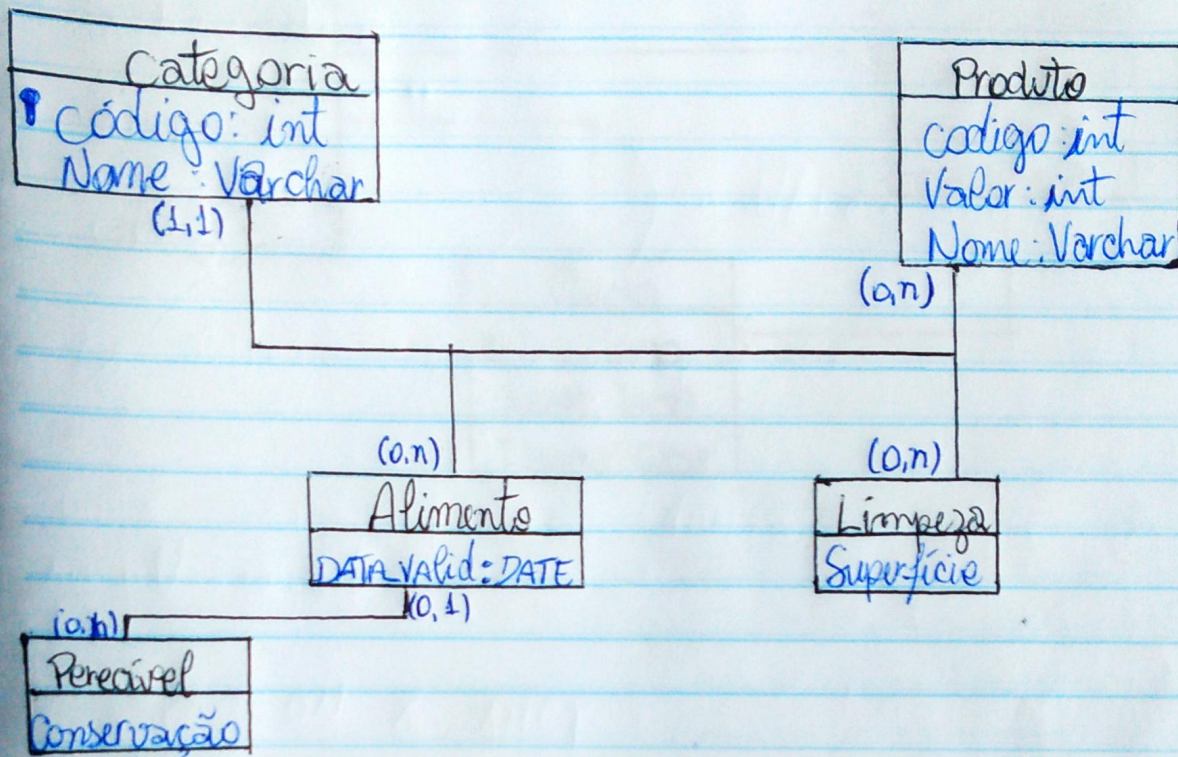 Categoria
código: int
Nome: Varchar
(1,1)
Produto
codigo: int
Valor: int
Nome: Varchar
(0,n)
(0,n)
Alimento
DATA VAlid: DATE
(0,1)
(0,n)
Limpeza
Superfície
(0,n)
Perecível
Conservação